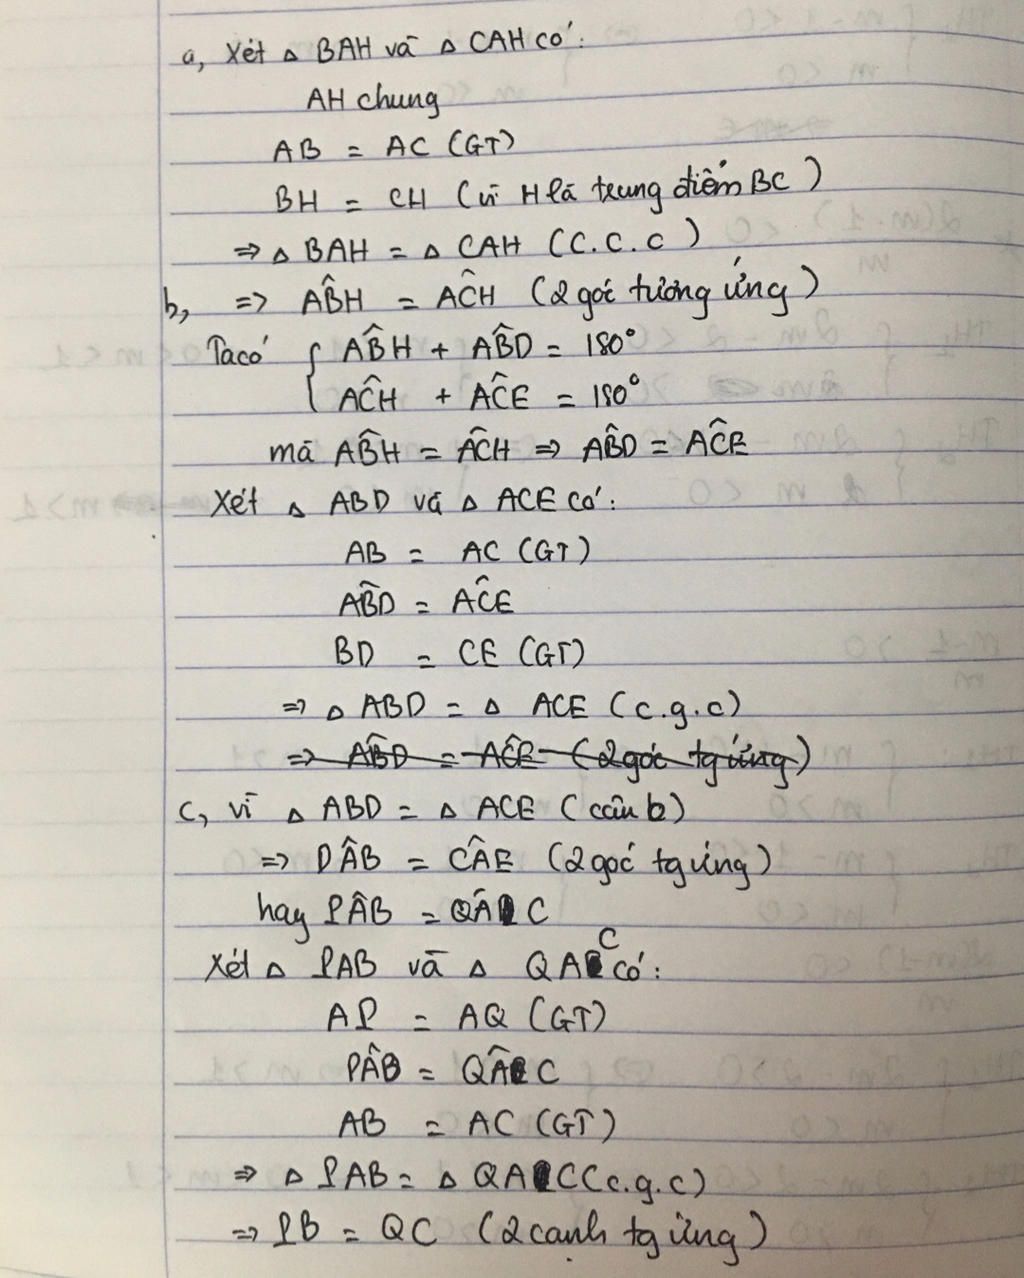 a, Xét △ BAH và △ CAH có:
AH chung
AB = AC (GT)
BH = CH (vì H là trung điểm BC)
=> △ BAH = △ CAH (C.C.C)
b, => AB̂H = AĈH (2 góc tương ứng)
Ta có { AB̂H + AB̂D = 180°
AĈH + AĈE = 180°
mà AB̂H = AĈH => AB̂D = AĈE
Xét △ ABD và △ ACE có:
AB = AC (GT)
AB̂D = AĈE
BD = CE (GT)
=> △ ABD = △ ACE (c.g.c)
=> AB̂D = AĈE (2 góc tg ứng)
c, vì △ ABD = △ ACE (câu b)
=> DÂB = CÂE (2 góc tg ứng)
hay PÂB = QÂC
Xét △ PAB và △ QAC có:
AP = AQ (GT)
PÂB = QÂC
AB = AC (GT)
=> △ PAB = △ QAC (c.g.c)
=> PB = QC (2 cạnh tg ứng)